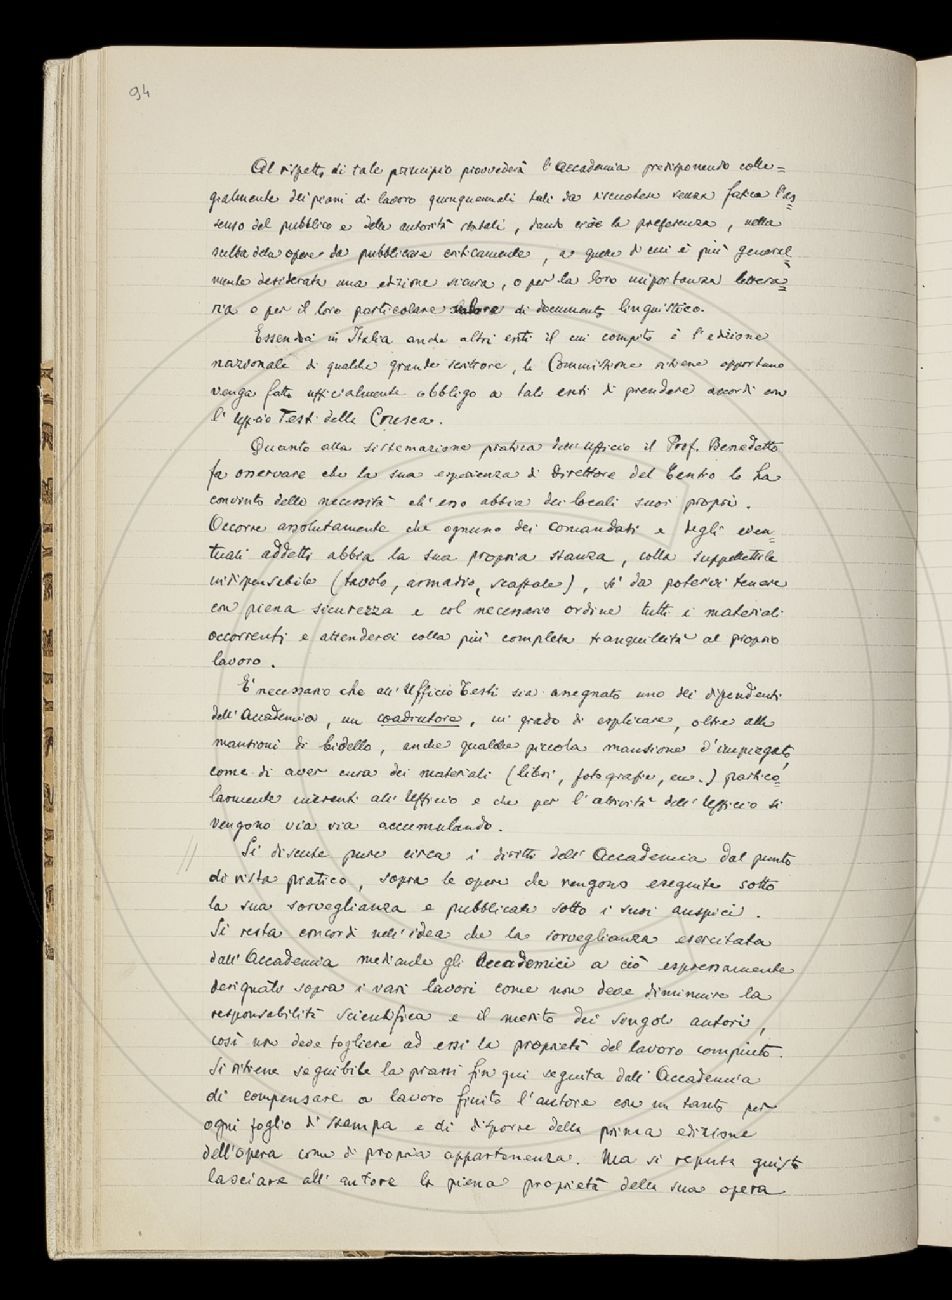 94
Al rispetto di tale principio provvederà l'Accademia predisponendo colle=
gialmente dei piani di lavoro quinquennali tali da riscuotere senza fatica l'as=
senso del pubblico e delle autorità statali, dando cioè la preferenza, nella
scelta delle opere da pubblicare criticamente, a quelle di cui è più general=
mente desiderata una edizione sicura, o per la loro importanza lettera=
ria o per il loro particolare valore di documento linguistico.
Essendoci in Italia anche altri enti il cui compito è l'edizione
nazionale di qualche grande scrittore, la Commissione ritiene opportuno
venga fatto ufficialmente obbligo a tali enti di prendere accordi con
l'Ufficio Testi della Crusca.
Quanto alla sistemazione pratica dell'Ufficio il Prof. Benedetto
fa osservare che la sua esperienza di Direttore del Centro lo ha
convinto della necessità ch'esso abbia dei locali suoi propri.
Occorre assolutamente che ognuno dei comandati e degli even=
tuali addetti abbia la sua propria stanza, colla suppellettile
indispensabile (tavolo, armadio, scaffale), sì da potervi tenere
con piena sicurezza e col necessario ordine tutti i materiali
occorrenti e attendervi colla più completa tranquillità al proprio
lavoro.
È necessario che all'Ufficio Testi sia assegnato uno dei dipendenti
dell'Accademia, un coadiutore, in grado di esplicare, oltre alle
mansioni di bidello, anche qualche piccola mansione d'impiegato,
come di aver cura dei materiali (libri, fotografie, ecc.) partico=
larmente inerenti all'Ufficio e che per l'attività dell'Ufficio si
vengono via via accumulando.
// Si discute pure circa i diritti dell'Accademia dal punto
di vista pratico, sopra le opere che vengono eseguite sotto
la sua sorveglianza e pubblicate sotto i suoi auspici.
Si resta concordi nell'idea che la sorveglianza esercitata
dall'Accademia mediante gli Accademici a ciò espressamente
designati sopra i vari lavori come non deve diminuire la
responsabilità scientifica e il merito dei singoli autori,
così non deve togliere ad essi la proprietà del lavoro compiuto.
Si ritiene seguibile la prassi fin qui seguita dall'Accademia
di compensare a lavoro finito l'autore con un tanto per
ogni foglio di stampa e di disporre della prima edizione
dell'opera come di propria appartenenza. Ma si reputa giusto
lasciare all'autore la piena proprietà della sua opera